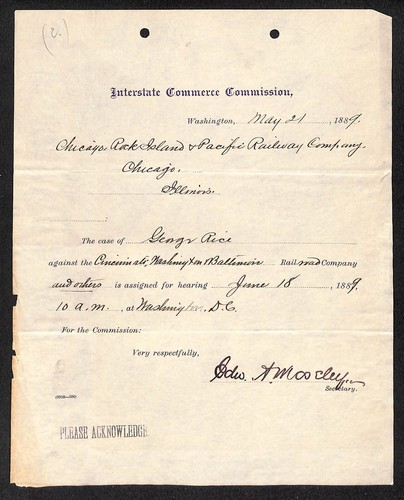 (2.)
Interstate Commerce Commission,
Washington, May 21, 1889.
Chicago, Rock Island & Pacific Railway Company.
Chicago.
Illinois.
The case of George Rice
against the Cincinnati, Washington & Baltimore Railroad Company
and others is assigned for hearing June 18, 1889,
10 a.m., at Washington, D.C.
For the Commission:
Very respectfully,
Edw. A. Moseley
Secretary.
PLEASE ACKNOWLEDGE